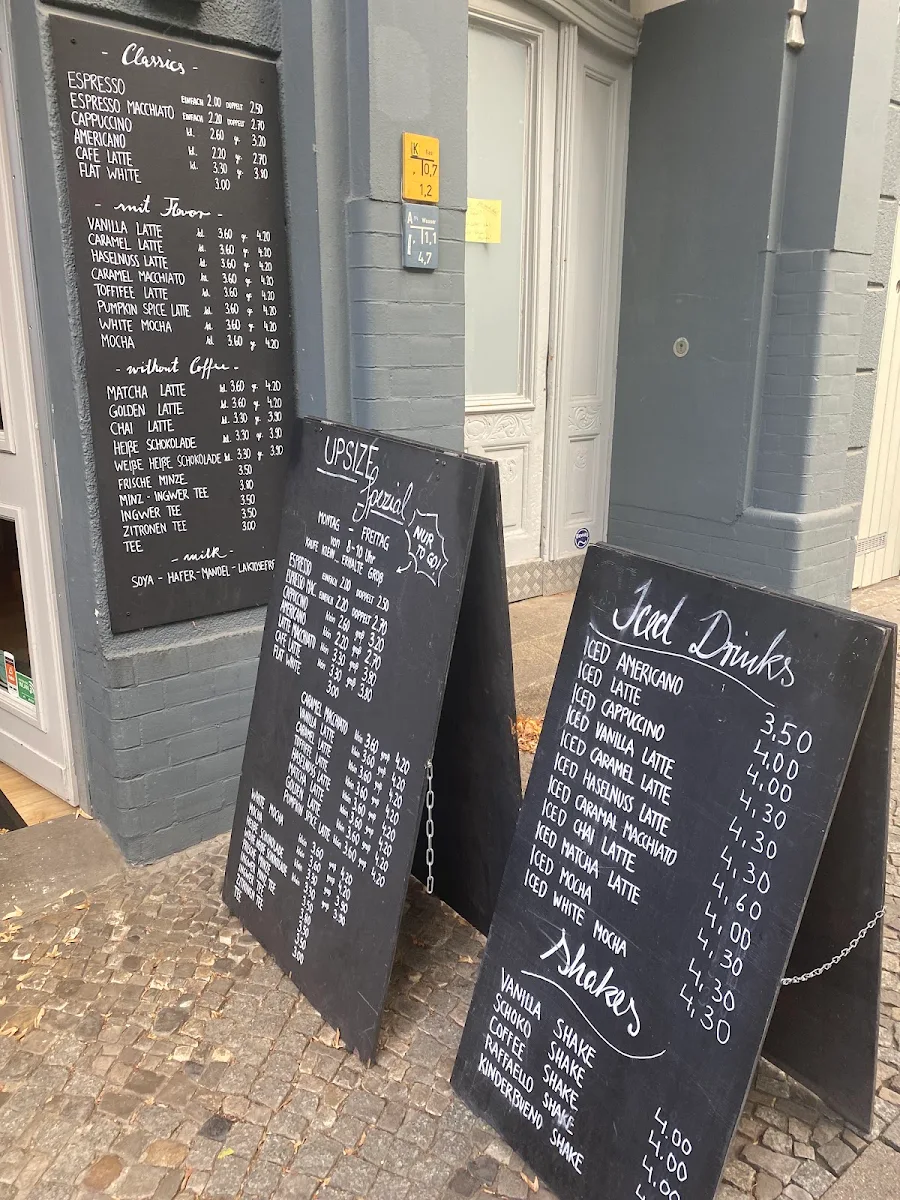 - Classics -
ESPRESSO EINFACH 2.00 DOPPELT 2.50
ESPRESSO MACCHIATO EINFACH 2.20 DOPPELT 2.70
CAPPUCCINO kl. 2.60 gr. 3.20
AMERICANO kl. 2.20 gr. 2.70
CAFE LATTE kl. 3.30 gr. 3.80
FLAT WHITE 3.00
- mit Flavor -
VANILLA LATTE kl. 3.60 gr. 4.20
CARAMEL LATTE kl. 3.60 gr. 4.20
HASELNUSS LATTE kl. 3.60 gr. 4.20
CARAMEL MACCHIATO kl. 3.60 gr. 4.20
TOFFIFEE LATTE kl. 3.60 gr. 4.20
PUMPKIN SPICE LATTE kl. 3.60 gr. 4.20
WHITE MOCHA kl. 3.60 gr. 4.20
MOCHA kl. 3.60 gr. 4.20
- without Coffee -
MATCHA LATTE kl. 3.60 gr. 4.20
GOLDEN LATTE kl. 3.60 gr. 4.20
CHAI LATTE kl. 3.30 gr. 3.90
HEIßE SCHOKOLADE kl. 3.30 gr. 3.90
WEIßE HEIßE SCHOKOLADE kl. 3.30 gr. 3.90
FRISCHE MINZE 3.50
MINZ - INGWER TEE 3.80
INGWER TEE 3.50
ZITRONEN TEE 3.50
TEE 3.00
- milk -
SOYA - HAFER - MANDEL - LAKTOSEFREI
K
0,7
1,2
A Wasser
1,1
4,7
UPSIZE
Spezial
MONTAG - FREITAG
VON 8-10 Uhr
KAUFE KLEIN - ERHALTE GROß
NUR
TO GO!
ESPRESSO EINFACH 2.00 DOPPELT 2.50
ESPRESSO MAC. EINFACH 2.20 DOPPELT 2.70
CAPPUCCINO klein 2.60 groß 3.20
AMERICANO klein 2.20 groß 2.70
LATTE MACCHIATO klein 3.30 groß 3.80
CAFE LATTE klein 3.30 groß 3.80
FLAT WHITE 3.00
CARAMEL MACCHIATO klein 3.60 groß 4.20
VANILLA LATTE klein 3.60 groß 4.20
CARAMEL LATTE klein 3.60 groß 4.20
TOFFIFEE LATTE klein 3.60 groß 4.20
HASELNUSS LATTE klein 3.60 groß 4.20
MATCHA LATTE klein 3.60 groß 4.20
GOLDEN LATTE klein 3.60 groß 4.20
PUMPKIN SPICE LATTE klein 3.60 groß 4.20
WHITE MOCHA klein 3.60 groß 4.20
MOCHA
HEIßE SCHOKOLADE
TEE 3.00
Iced Drinks
ICED AMERICANO 3,50
ICED LATTE 4.00
ICED CAPPUCCINO 4.00
ICED VANILLA LATTE 4,30
ICED CARAMEL LATTE 4,30
ICED HASELNUSS LATTE 4,30
ICED CARAMAL MACCHIATO 4,60
ICED CHAI LATTE 4,00
ICED MATCHA LATTE 4,30
ICED MOCHA 4,30
ICED WHITE MOCHA 4,30
Shakes
VANILLA SHAKE 4.00
SCHOKO SHAKE 4.00
COFFEE SHAKE 4.00
RAFFAELLO SHAKE
KINDERBUENO SHAKE